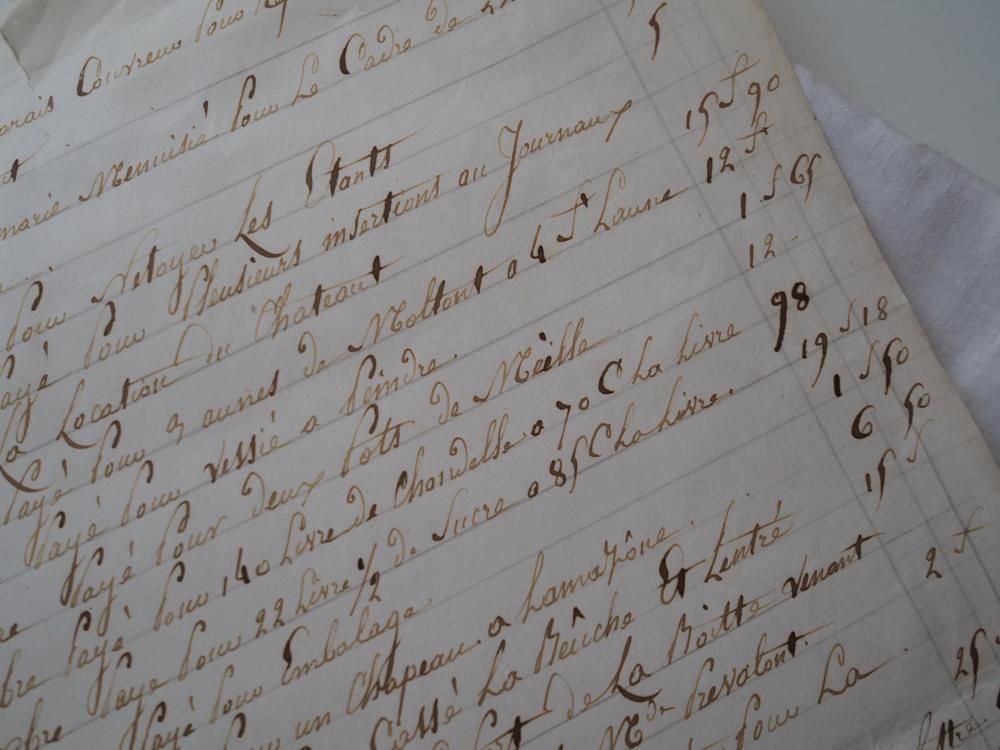 arais Couvreur pour
marie Menuisié pour Le Cadre de
5
pour Netoyer Les Etants
payé pour plusieurs insertions au Journaux 15 f 90
La Location du Chateaut 12 f
Payé pour 3 aunes de Moltont a 4 f Laune 12 -
payé pour vessié a peindre. 1 f 65
payé pour deux pots de Mëille
payé pour 140 Livre de Chandelle a 70 C La Livre 98
bre payé pour 22 Livre 1/2 de Sucre a 85 C La Livre. 19 f 18
payé pour Embalage 1 f 50
un Chapeau a Lamazône. 6 50
Cassé La Brûche Et Lentré 15 f
de La Boitte venant 2 f
Mdr prevatont.
pour La 25